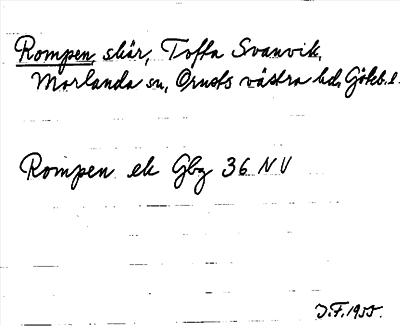 Rompen, skär, Toffa Svanvik,
Morlanda sn, Orusts västra hd, Göteb. l.
Rompen ek Gbg 36 NV
J.F. 1955.